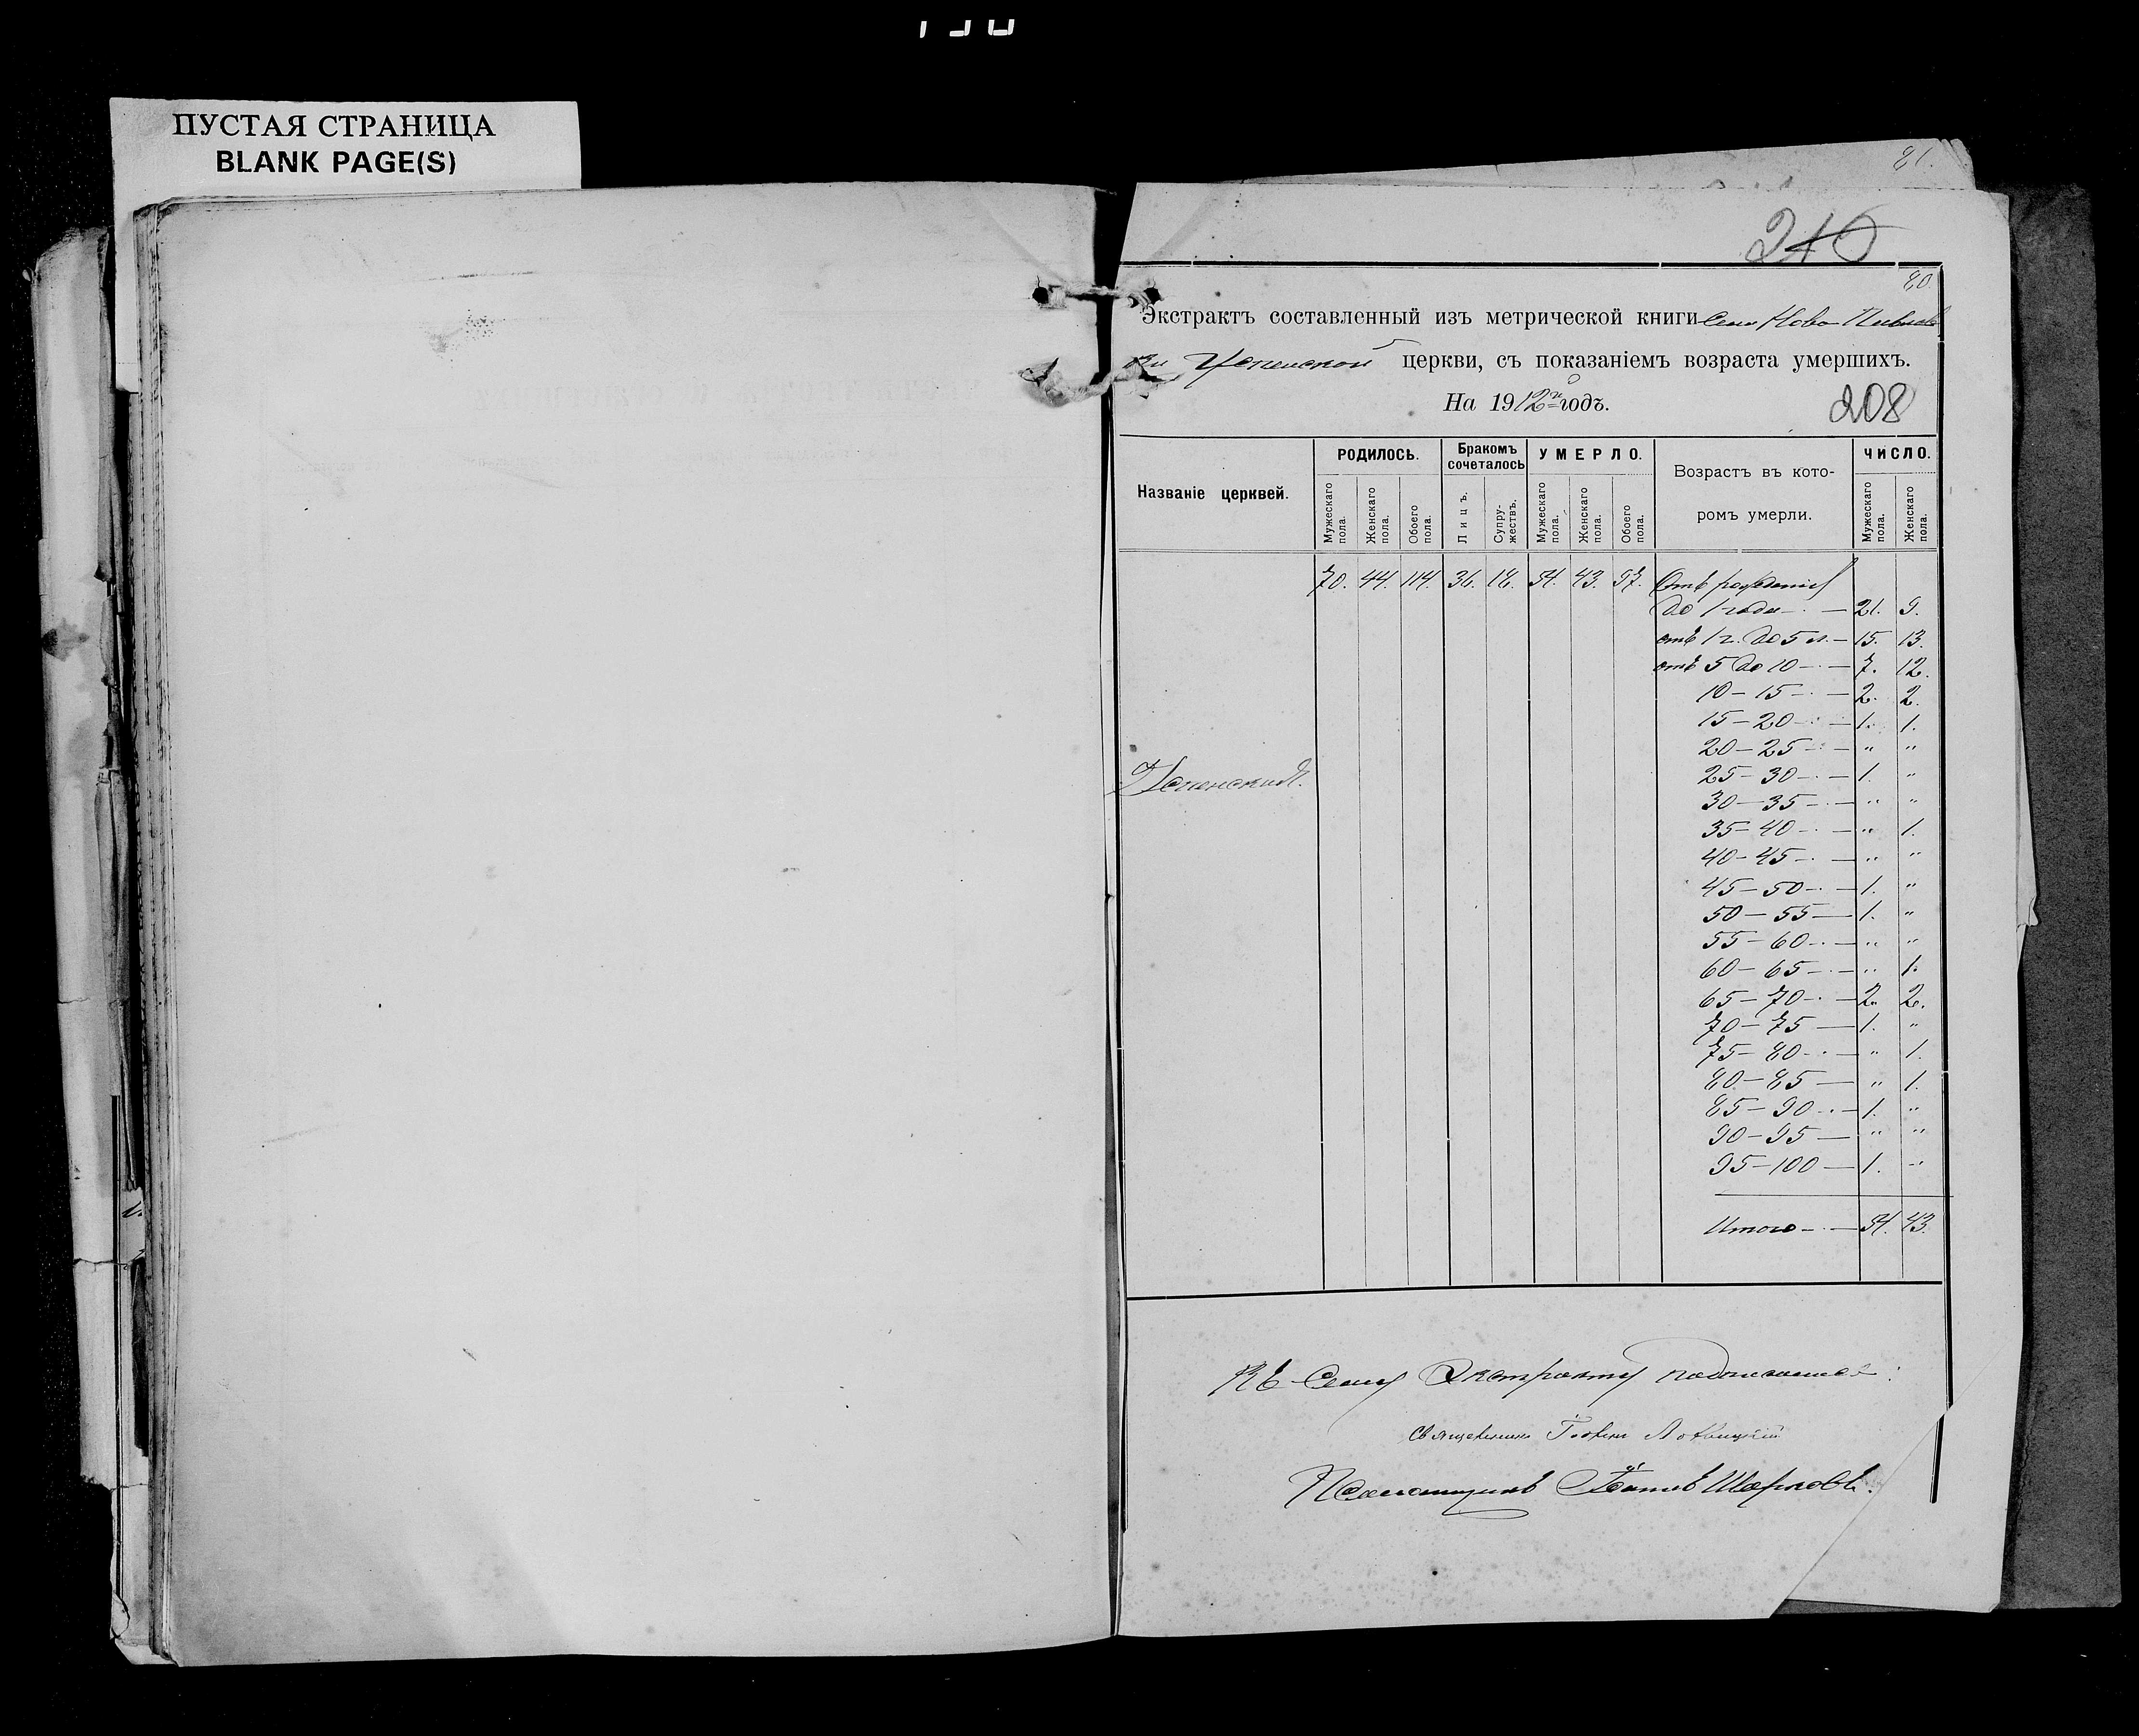 ПУСТАЯ СТРАНИЦА
BLANK PAGE(S)
81.
210
80.
Экстрактъ составленный изъ метрической книги Села Ново-Павлов
ки Успенской церкви, съ показаніемъ возраста умершихъ.
На 1912й годъ.
208
Названіе церквей.
РОДИЛОСЬ.
Бракомъ сочеталось
УМЕРЛО.
Возрастъ въ кото-
ромъ умерли.
ЧИСЛО.
Мужескаго пола. Женскаго пола. Обоего пола. Лицъ. Супру-жествъ. Мужескаго пола. Женскаго пола. Обоего пола. Мужескаго пола. Женскаго пола.
70. 44. 114. 36. 18. 54. 43. 97. Отъ рожденія
до 1 года — 21. 9.
отъ 1 г. до 5 л. — 15. 13.
отъ 5 до 10 — 7. 12.
10 — 15 — 2. 2.
15 — 20 — 1. 1.
20 — 25 — " "
Успенская.
25 — 30 — 1. "
30 — 35 — " "
35 — 40 — " 1.
40 — 45 — " "
45 — 50 — 1. "
50 — 55 — 1. "
55 — 60 — " "
60 — 65 — " 1.
65 — 70 — 2. 2.
70 — 75 — 1. "
75 — 80 — " 1.
80 — 85 — " 1.
85 — 90 — 1. "
90 — 95 — " "
95 — 100 — 1. "
Итого — 54. 43.
Къ сему Экстракту подписались:
Священникъ
Псаломщикъ